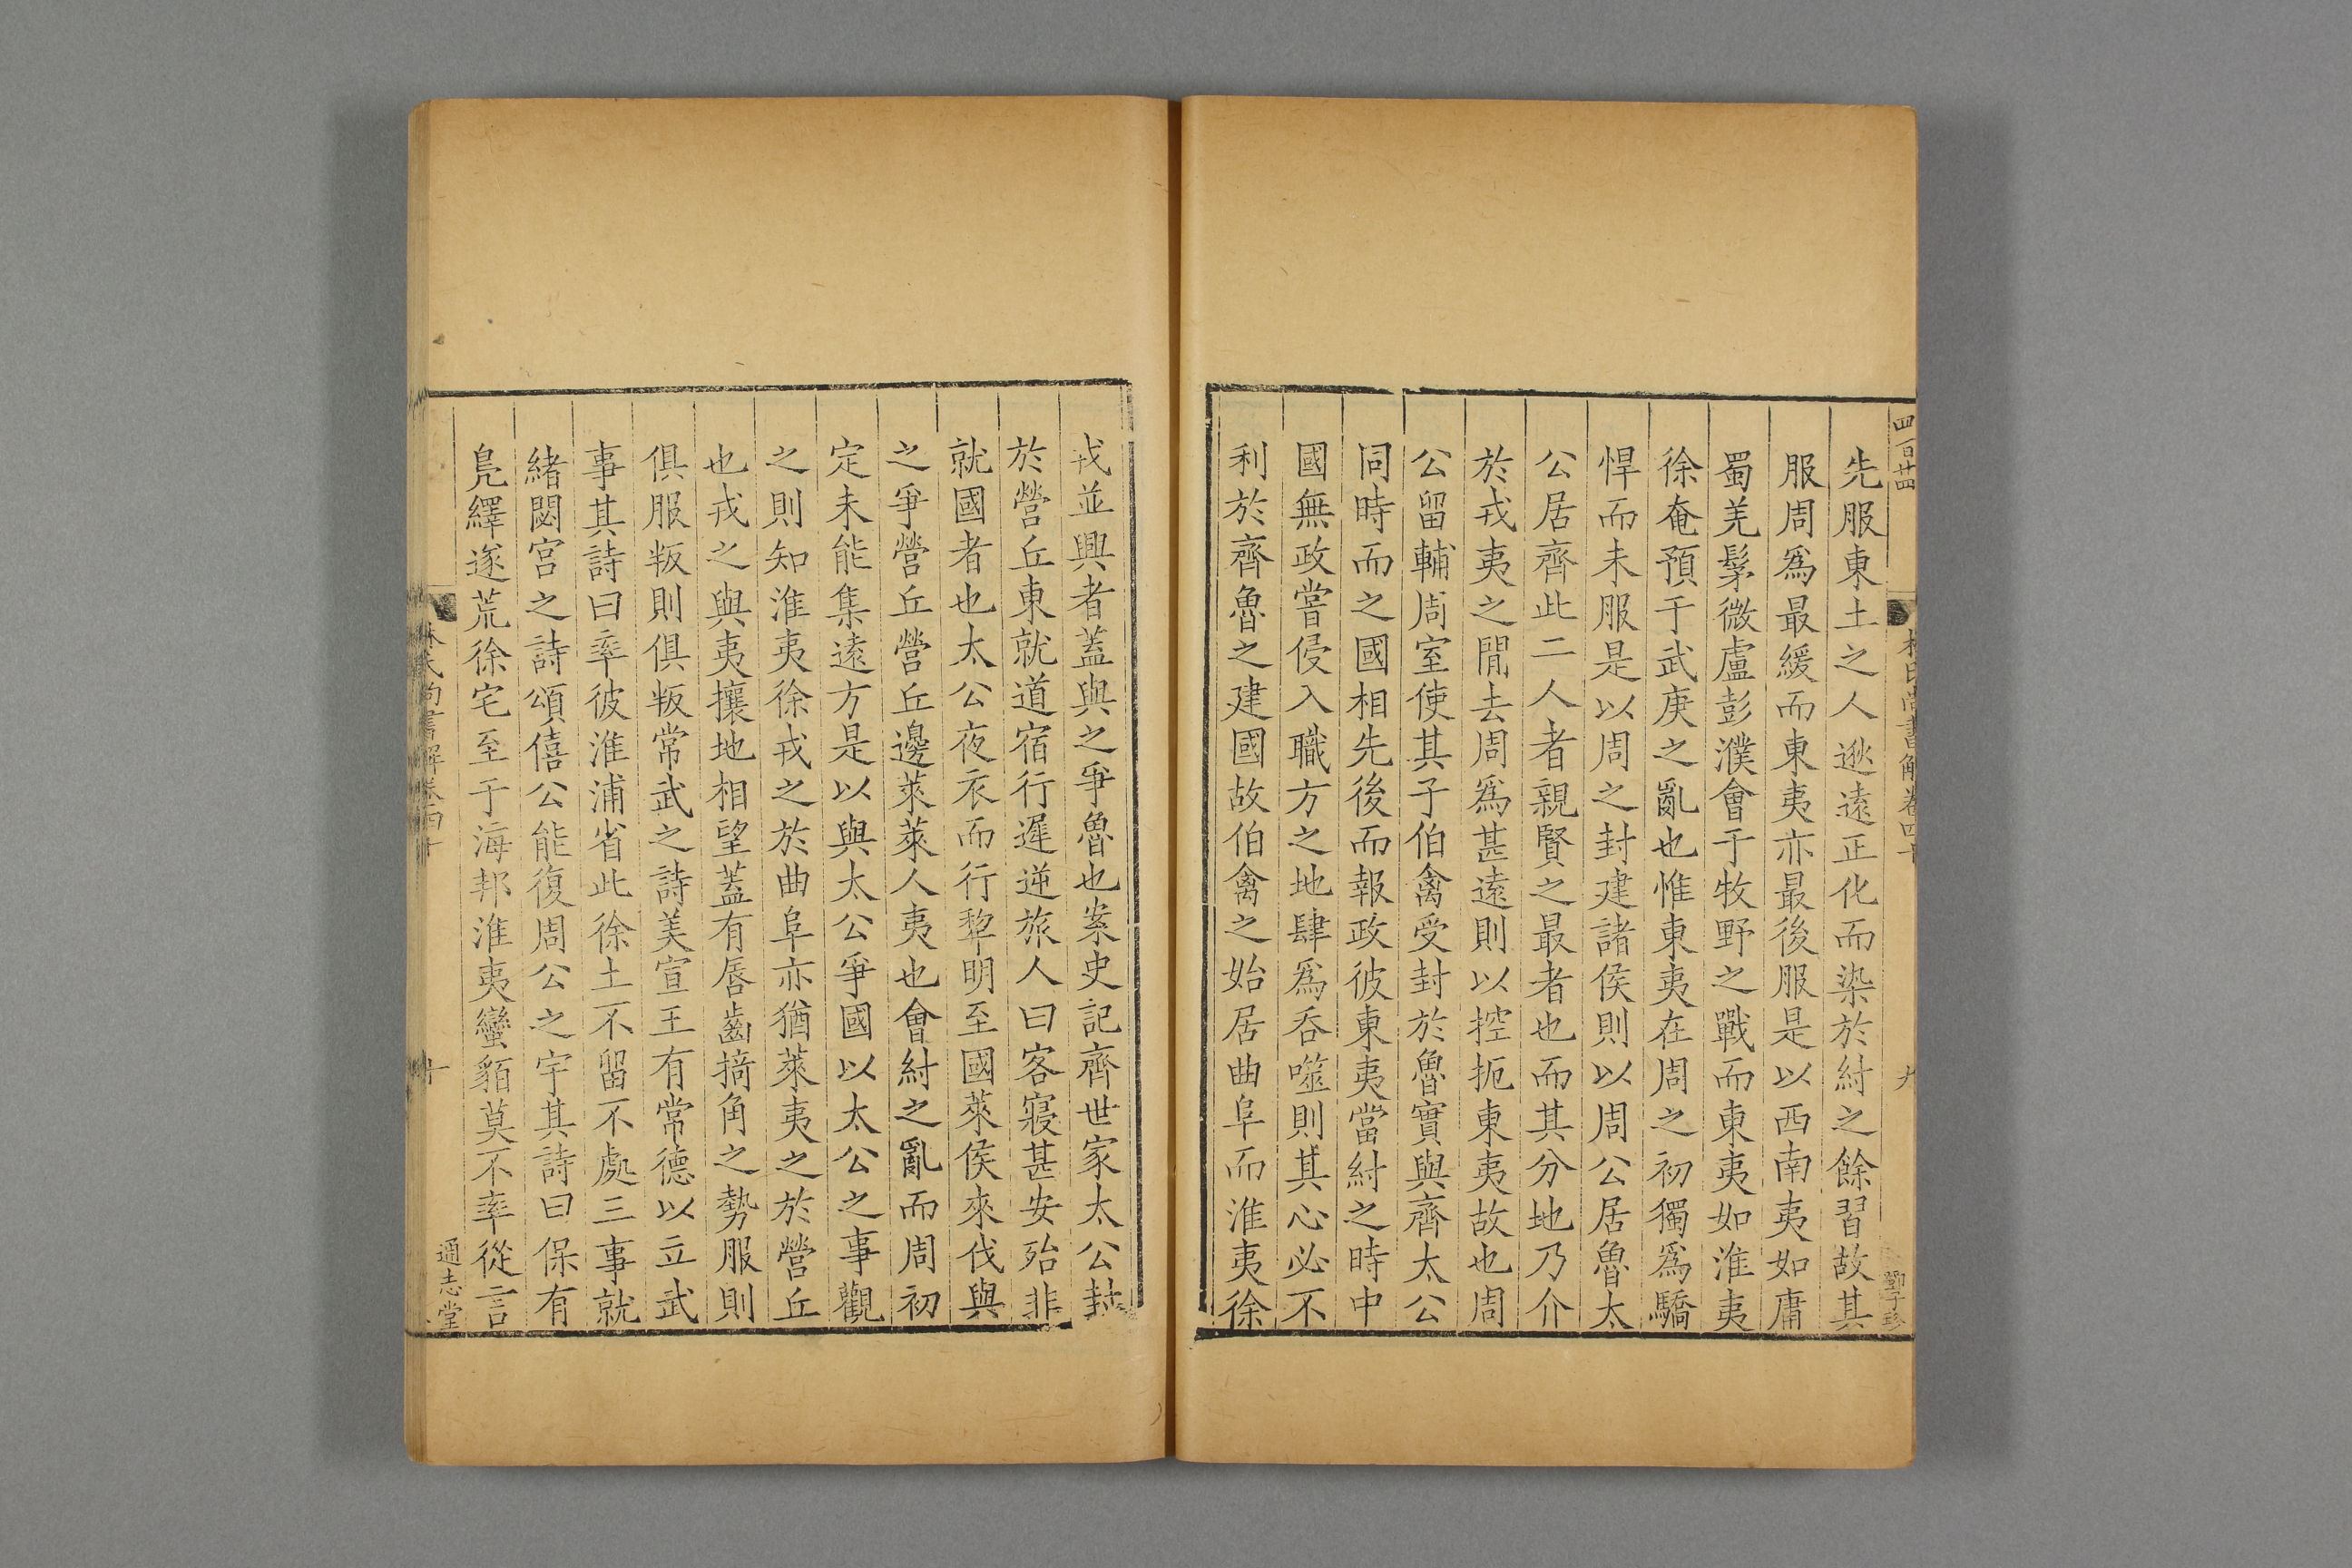 四百廿四
林氏尚書解卷四十
九
先服東土之人逖遠正化而染於紂之餘習故其
服周爲最緩而東夷亦最後服是以西南夷如庸
蜀羌髳微盧彭濮會于牧野之戰而東夷如淮夷
徐奄預于武庚之亂也惟東夷在周之初獨爲驕
悍而未服是以周之封建諸侯則以周公居魯太
公居齊此二人者親賢之最者也而其分地乃介
於戎夷之閒去周爲甚遠則以控扼東夷故也周
公留輔周室使其子伯禽受封於魯實與齊太公
同時而之國相先後而報政彼東夷當紂之時中
國無政嘗侵入職方之地肆爲吞噬則其心必不
利於齊魯之建國故伯禽之始居曲阜而淮夷徐
戎並興者蓋與之爭魯也案史記齊世家太公封
於營丘東就道宿行遲逆旅人曰客寢甚安殆非
就國者也太公夜衣而行犂明至國萊侯來伐與
之爭營丘營丘邊萊萊人夷也會紂之亂而周初
定未能集遠方是以與太公爭國以太公之事觀
之則知淮夷徐戎之於曲阜亦猶萊夷之於營丘
也戎之與夷攘地相望蓋有唇齒掎角之勢服則
俱服叛則俱叛常武之詩美宣王有常德以立武
事其詩曰率彼淮浦省此徐土不留不處三事就
緒閟宮之詩頌僖公能復周公之宇其詩曰保有
鳧繹遂荒徐宅至于海邦淮夷蠻貊莫不率從言
林氏尚書解卷四十
十
通志堂